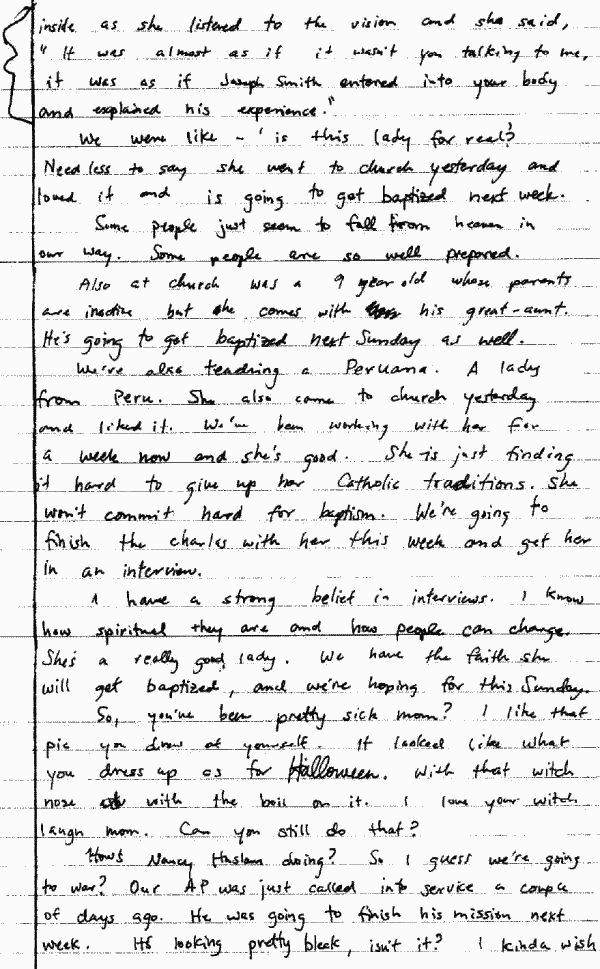 inside as she listened to the vision and she said,
"It was almost as if it wasn't you talking to me,
it was as if Joseph Smith entered into your body
and explained his experience."
We were like - 'is this lady for real?'
Needless to say she went to church yesterday and
loved it and is going to get baptized next week.
Some people just seem to fall from heaven in
our way. Some people are so well prepared.
Also at church was a 9 year old whose parents
are inactive but he comes with his great-aunt.
He's going to get baptized next Sunday as well.
We're also teaching a Peruana. A lady
from Peru. She also came to church yesterday
and liked it. We've been working with her for
a week now and she's good. She is just finding
it hard to give up her Catholic traditions. She
won't commit hard for baptism. We're going to
finish the charlas with her this week and get her
in an interview.
I have a strong belief in interviews. I know
how spiritual they are and how people can change.
She's a really good lady. We have the faith she
will get baptized, and we're hoping for this Sunday.
So, you've been pretty sick mom? I like that
pic you drew of yourself. It looked like what
you dress up as for Halloween. With that witch
nose with the boil on it. I love your witch
laugh mom. Can you still do that?
How's Nancy Haslam doing? So I guess we're going
to war? Our AP was just called into service a couple
of days ago. He was going to finish his mission next
week. It's looking pretty bleak, isn't it? I kinda wish